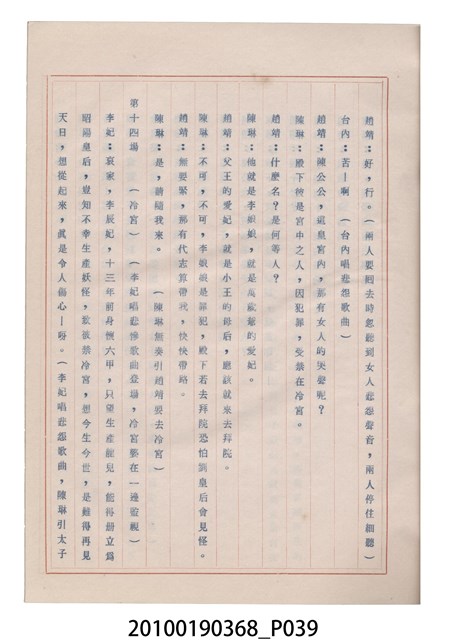 趙靖：好，行。（兩人要囘去時忽聽到女人悲怨聲音，兩人停住細聽）
台內：苦—啊　（台內唱悲怨歌曲）
趙靖：陳公公，這皇宮內，那有女人的哭聲呢？
陳琳：殿下彼是宮中之人，因犯罪，受禁在冷宮。
趙靖：什麼名？是何等人？
陳琳：他就是李娘娘，就是萬歲爺的愛妃。
趙靖：父王的愛妃，就是小王的母后，應該就來去拜院。
陳琳：不可，不可，李娘娘是罪犯，殿下若去拜院恐怕劉皇后會見怪。
趙靖：無要緊，那有代志靠帶我，快快帶路。
陳琳：是，請隨我來。　（陳琳無奈引趙靖要去冷宮）
第十四場　（冷宮）　（李妃唱悲慘歌曲登場，冷宮婆在一邊監視）
李妃：哀家，李辰妃，十三年前身懷六甲，只望生產龍兒，能得册立爲
昭陽皇后，豈知不幸生產妖怪，致被禁冷宮，想今生今世，是難得再見
天日，想從起來，眞是令人傷心—呀。（李妃唱悲怨歌曲，陳琳引太子
20100190368_P039